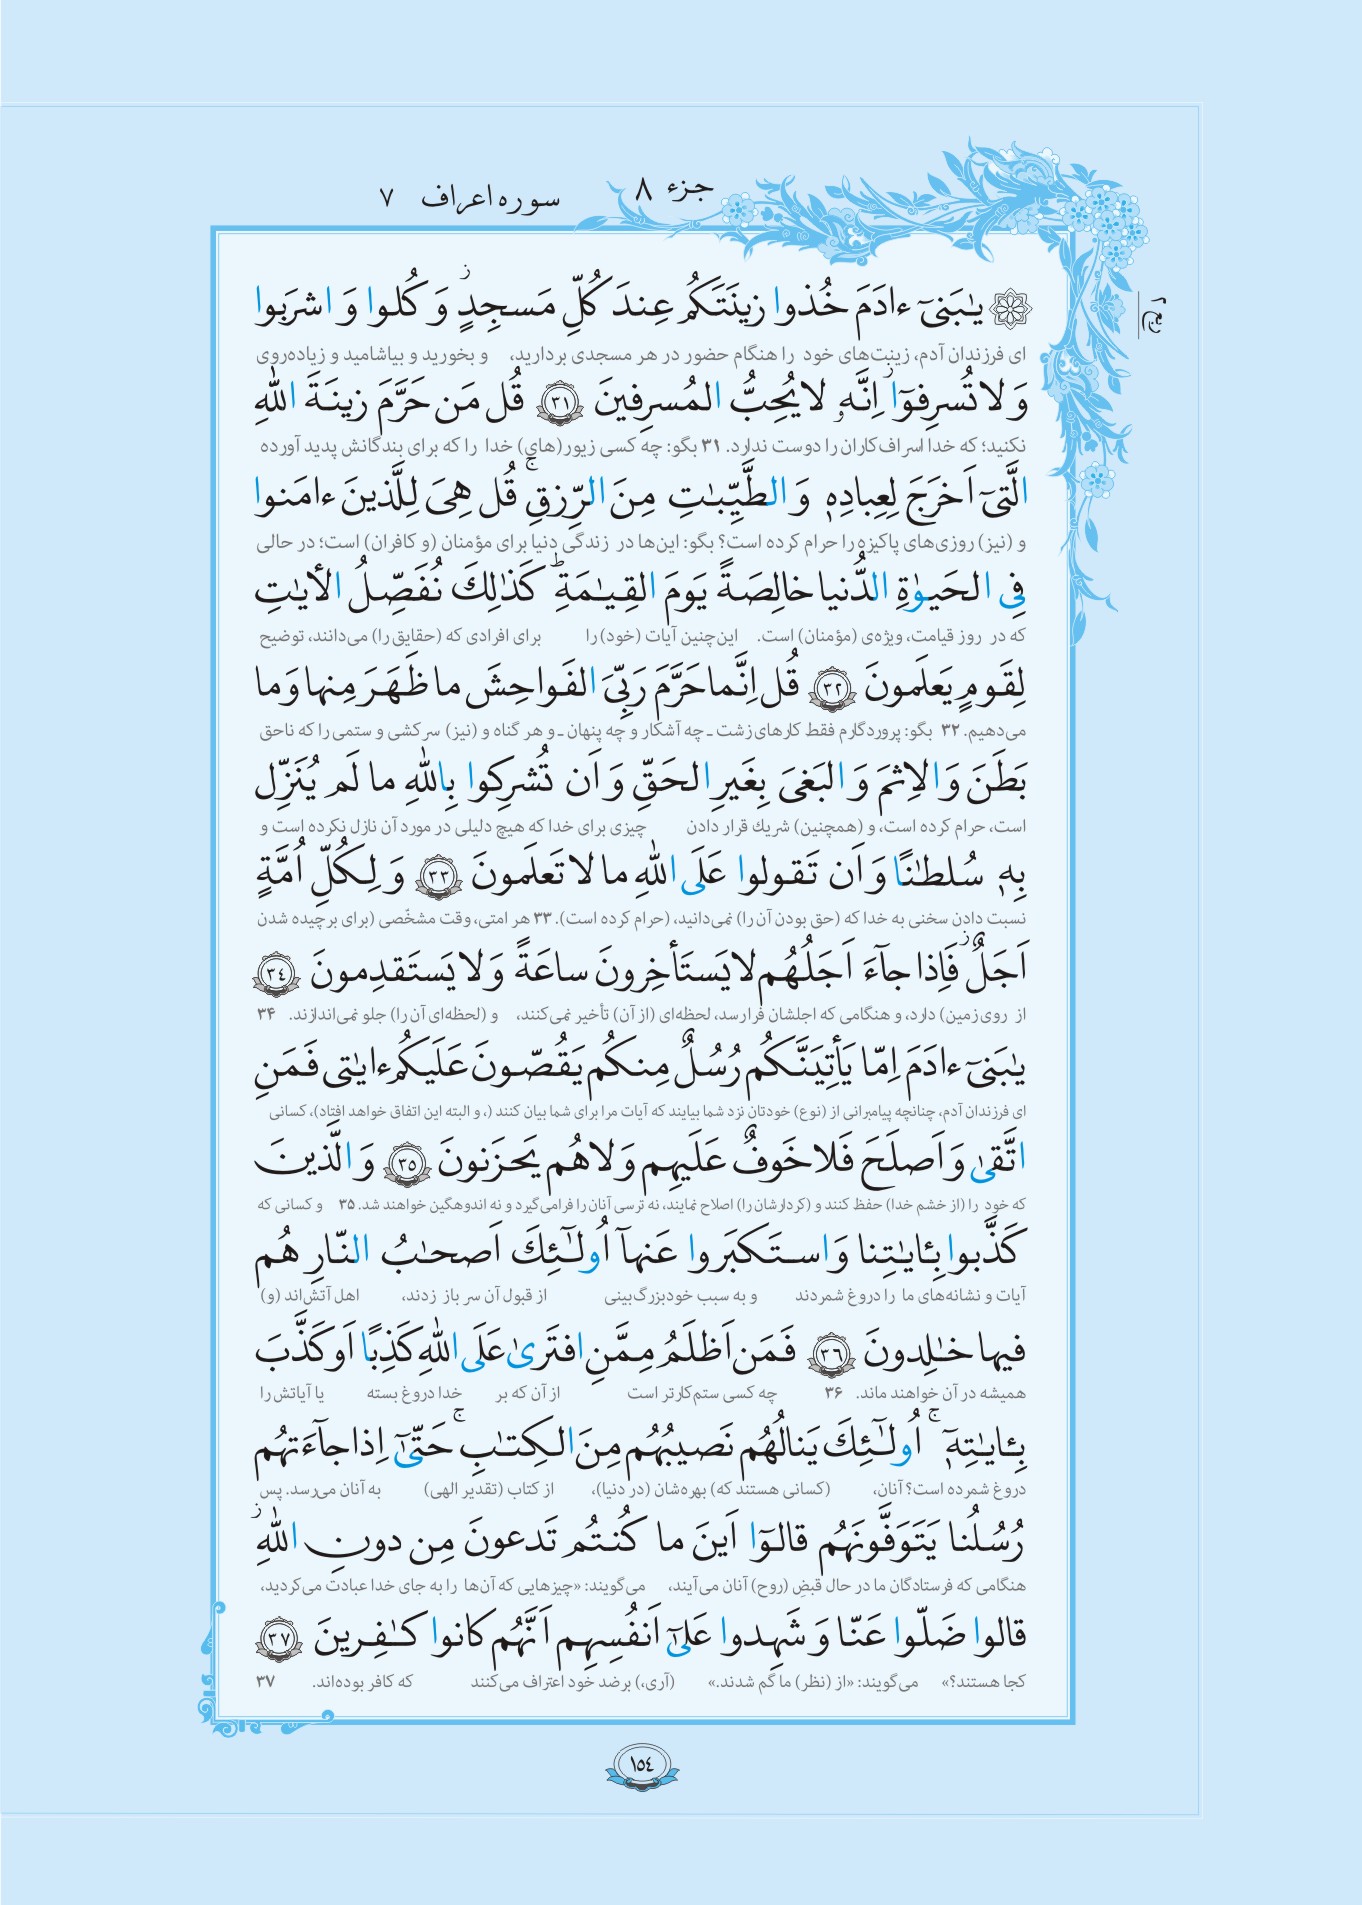 جزء ۸
سوره اعراف ۷
ربع ۲
يٰبَنىٓ ءادَمَ خُذوا زينَتَكُم عِندَ كُلِّ مَسجِدٍ ۖ وَ كُلوا وَ اشرَبوا
ای فرزندان آدم، زینت‌های خود را هنگام حضور در هر مسجدی بردارید، و بخورید و بیاشامید و زیاده‌روی
وَ لا تُسرِفوٓا ۚ اِنَّهٗ لا يُحِبُّ المُسرِفينَ ٣١ قُل مَن حَرَّمَ زينَةَ اللّٰهِ
نکنید؛ که خدا اسراف‌کاران را دوست ندارد. ۳۱ بگو: چه کسی زیور(های) خدا را که برای بندگانش پدید آورده
الَّتىٓ اَخرَجَ لِعِبادِهٖ وَ الطَّيِّبٰتِ مِنَ الرِّزقِ ۚ قُل هِىَ لِلَّذينَ ءامَنوا
و (نیز) روزی‌های پاکیزه را حرام کرده است؟ بگو: این‌ها در زندگی دنیا برای مؤمنان (و کافران) است؛ در حالی
فِى الحَيوٰةِ الدُّنيا خالِصَةً يَومَ القِيٰمَةِ ۗ كَذٰلِكَ نُفَصِّلُ الأيٰتِ
که در روز قیامت، ویژه‌ی (مؤمنان) است. این‌چنین آیات (خود) را برای افرادی که (حقایق را) می‌دانند، توضیح
لِقَومٍ يَعلَمونَ ٣٢ قُل اِنَّما حَرَّمَ رَبِّىَ الفَواحِشَ ما ظَهَرَ مِنها وَ ما
می‌دهیم. ۳۲ بگو: پروردگارم فقط کارهای زشت ـ چه آشکار و چه پنهان ـ و هر گناه و (نیز) سرکشی و ستمی را که ناحق
بَطَنَ وَ الاِثمَ وَ البَغىَ بِغَيرِ الحَقِّ وَ اَن تُشرِكوا بِاللّٰهِ ما لَم يُنَزِّل
است، حرام کرده است، و (همچنین) شریك قرار دادن چیزی برای خدا که هیچ دلیلی در مورد آن نازل نکرده است و
بِهٖ سُلطٰنًا وَ اَن تَقولوا عَلَى اللّٰهِ ما لا تَعلَمونَ ٣٣ وَ لِكُلِّ اُمَّةٍ
نسبت دادن سخنی به خدا که (حق بودن آن را) نمی‌دانید، (حرام کرده است). ۳۳ هر امتی، وقت مشخّصی (برای برچیده شدن
اَجَلٌ ۖ فَاِذا جآءَ اَجَلُهُم لا يَستَأخِرونَ ساعَةً وَ لا يَستَقدِمونَ ٣٤
از روی زمین) دارد، و هنگامی که اجلشان فرارسد، لحظه‌ای (از آن) تأخیر نمی‌کنند، و (لحظه‌ای آن را) جلو نمی‌اندازند. ۳۴
يٰبَنىٓ ءادَمَ اِمّا يَأتِيَنَّكُم رُسُلٌ مِنكُم يَقُصّونَ عَلَيكُم ءايٰتى فَمَنِ
ای فرزندان آدم، چنانچه پیامبرانی از (نوع) خودتان نزد شما بیایند که آیات مرا برای شما بیان کنند (، و البته این اتفاق خواهد افتاد)، کسانی
اتَّقىٰ وَ اَصلَحَ فَلا خَوفٌ عَلَيهِم وَ لا هُم يَحزَنونَ ٣٥ وَ الَّذينَ
که خود را (از خشم خدا) حفظ کنند و (کردارشان را) اصلاح نمایند، نه ترسی آنان را فرامی‌گیرد و نه اندوهگین خواهند شد. ۳۵ و کسانی که
كَذَّبوا بِـٔايٰتِنا وَ استَكبَروا عَنهآ اُولٰٓئِكَ اَصحٰبُ النّارِ هُم
آیات و نشانه‌های ما را دروغ شمردند و به سبب خودبزرگ‌بینی از قبول آن سر باز زدند، اهل آتش‌اند (و)
فيها خٰلِدونَ ٣٦ فَمَن اَظلَمُ مِمَّنِ افتَرىٰ عَلَى اللّٰهِ كَذِبًا اَو كَذَّبَ
همیشه در آن خواهند ماند. ۳۶ چه کسی ستم‌کارتر است از آن که بر خدا دروغ بسته یا آیاتش را
بِـٔايٰتِهٖٓ ۚ اُولٰٓئِكَ يَنالُهُم نَصيبُهُم مِنَ الكِتٰبِ ۚ حَتّىٰٓ اِذا جآءَتهُم
دروغ شمرده است؟ آنان، (کسانی هستند که) بهره‌شان (در دنیا)، از کتاب (تقدیر الهی) به آنان می‌رسد. پس
رُسُلُنا يَتَوَفَّونَهُم قالوٓا اَينَ ما كُنتُم تَدعونَ مِن دونِ اللّٰهِ ۖ
هنگامی که فرستادگان ما در حال قبضِ (روح) آنان می‌آیند، می‌گویند: «چیزهایی که آن‌ها را به جای خدا عبادت می‌کردید،
قالوا ضَلّوا عَنّا وَ شَهِدوا عَلىٰٓ اَنفُسِهِم اَنَّهُم كانوا كٰفِرينَ ٣٧
کجا هستند؟» می‌گویند: «از (نظر) ما گم شدند.» (آری،) بر ضد خود اعتراف می‌کنند که کافر بوده‌اند. ۳۷
١٥٤